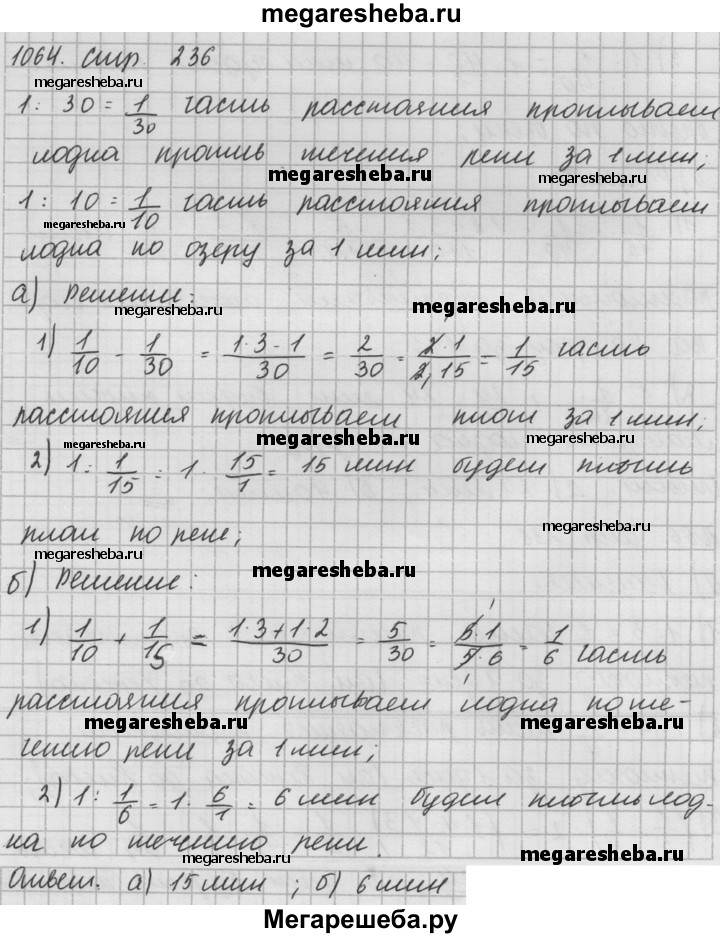 megaresheba.ru
1064. стр. 236
megaresheba.ru
1 : 30 = 1/30 часть расстояния проплывает
лодка против течения реки за 1 мин;
megaresheba.ru megaresheba.ru
1 : 10 = 1/10 часть расстояния проплывает
megaresheba.ru megaresheba.ru
лодка по озеру за 1 мин;
а) Решение:
megaresheba.ru megaresheba.ru
1) 1/10 - 1/30 = (1·3-1)/30 = 2/30 = (2·1)/(2·15) = 1/15 часть
расстояния проплывает плот за 1 мин;
megaresheba.ru megaresheba.ru megaresheba.ru
2) 1 : 1/15 = 1 · 15/1 = 15 мин будет плыть
плот по реке;
megaresheba.ru
megaresheba.ru megaresheba.ru
б) Решение:
1) 1/10 + 1/15 = (1·3+1·2)/30 = 5/30 = (5·1)/(5·6) = 1/6 часть
расстояния проплывает лодка по те-
megaresheba.ru megaresheba.ru
чению реки за 1 мин;
2) 1 : 1/6 = 1 · 6/1 = 6 мин будет плыть лод-
ка по течению реки.
megaresheba.ru megaresheba.ru
Ответ: а) 15 мин ; б) 6 мин
Мегарешеба.ру